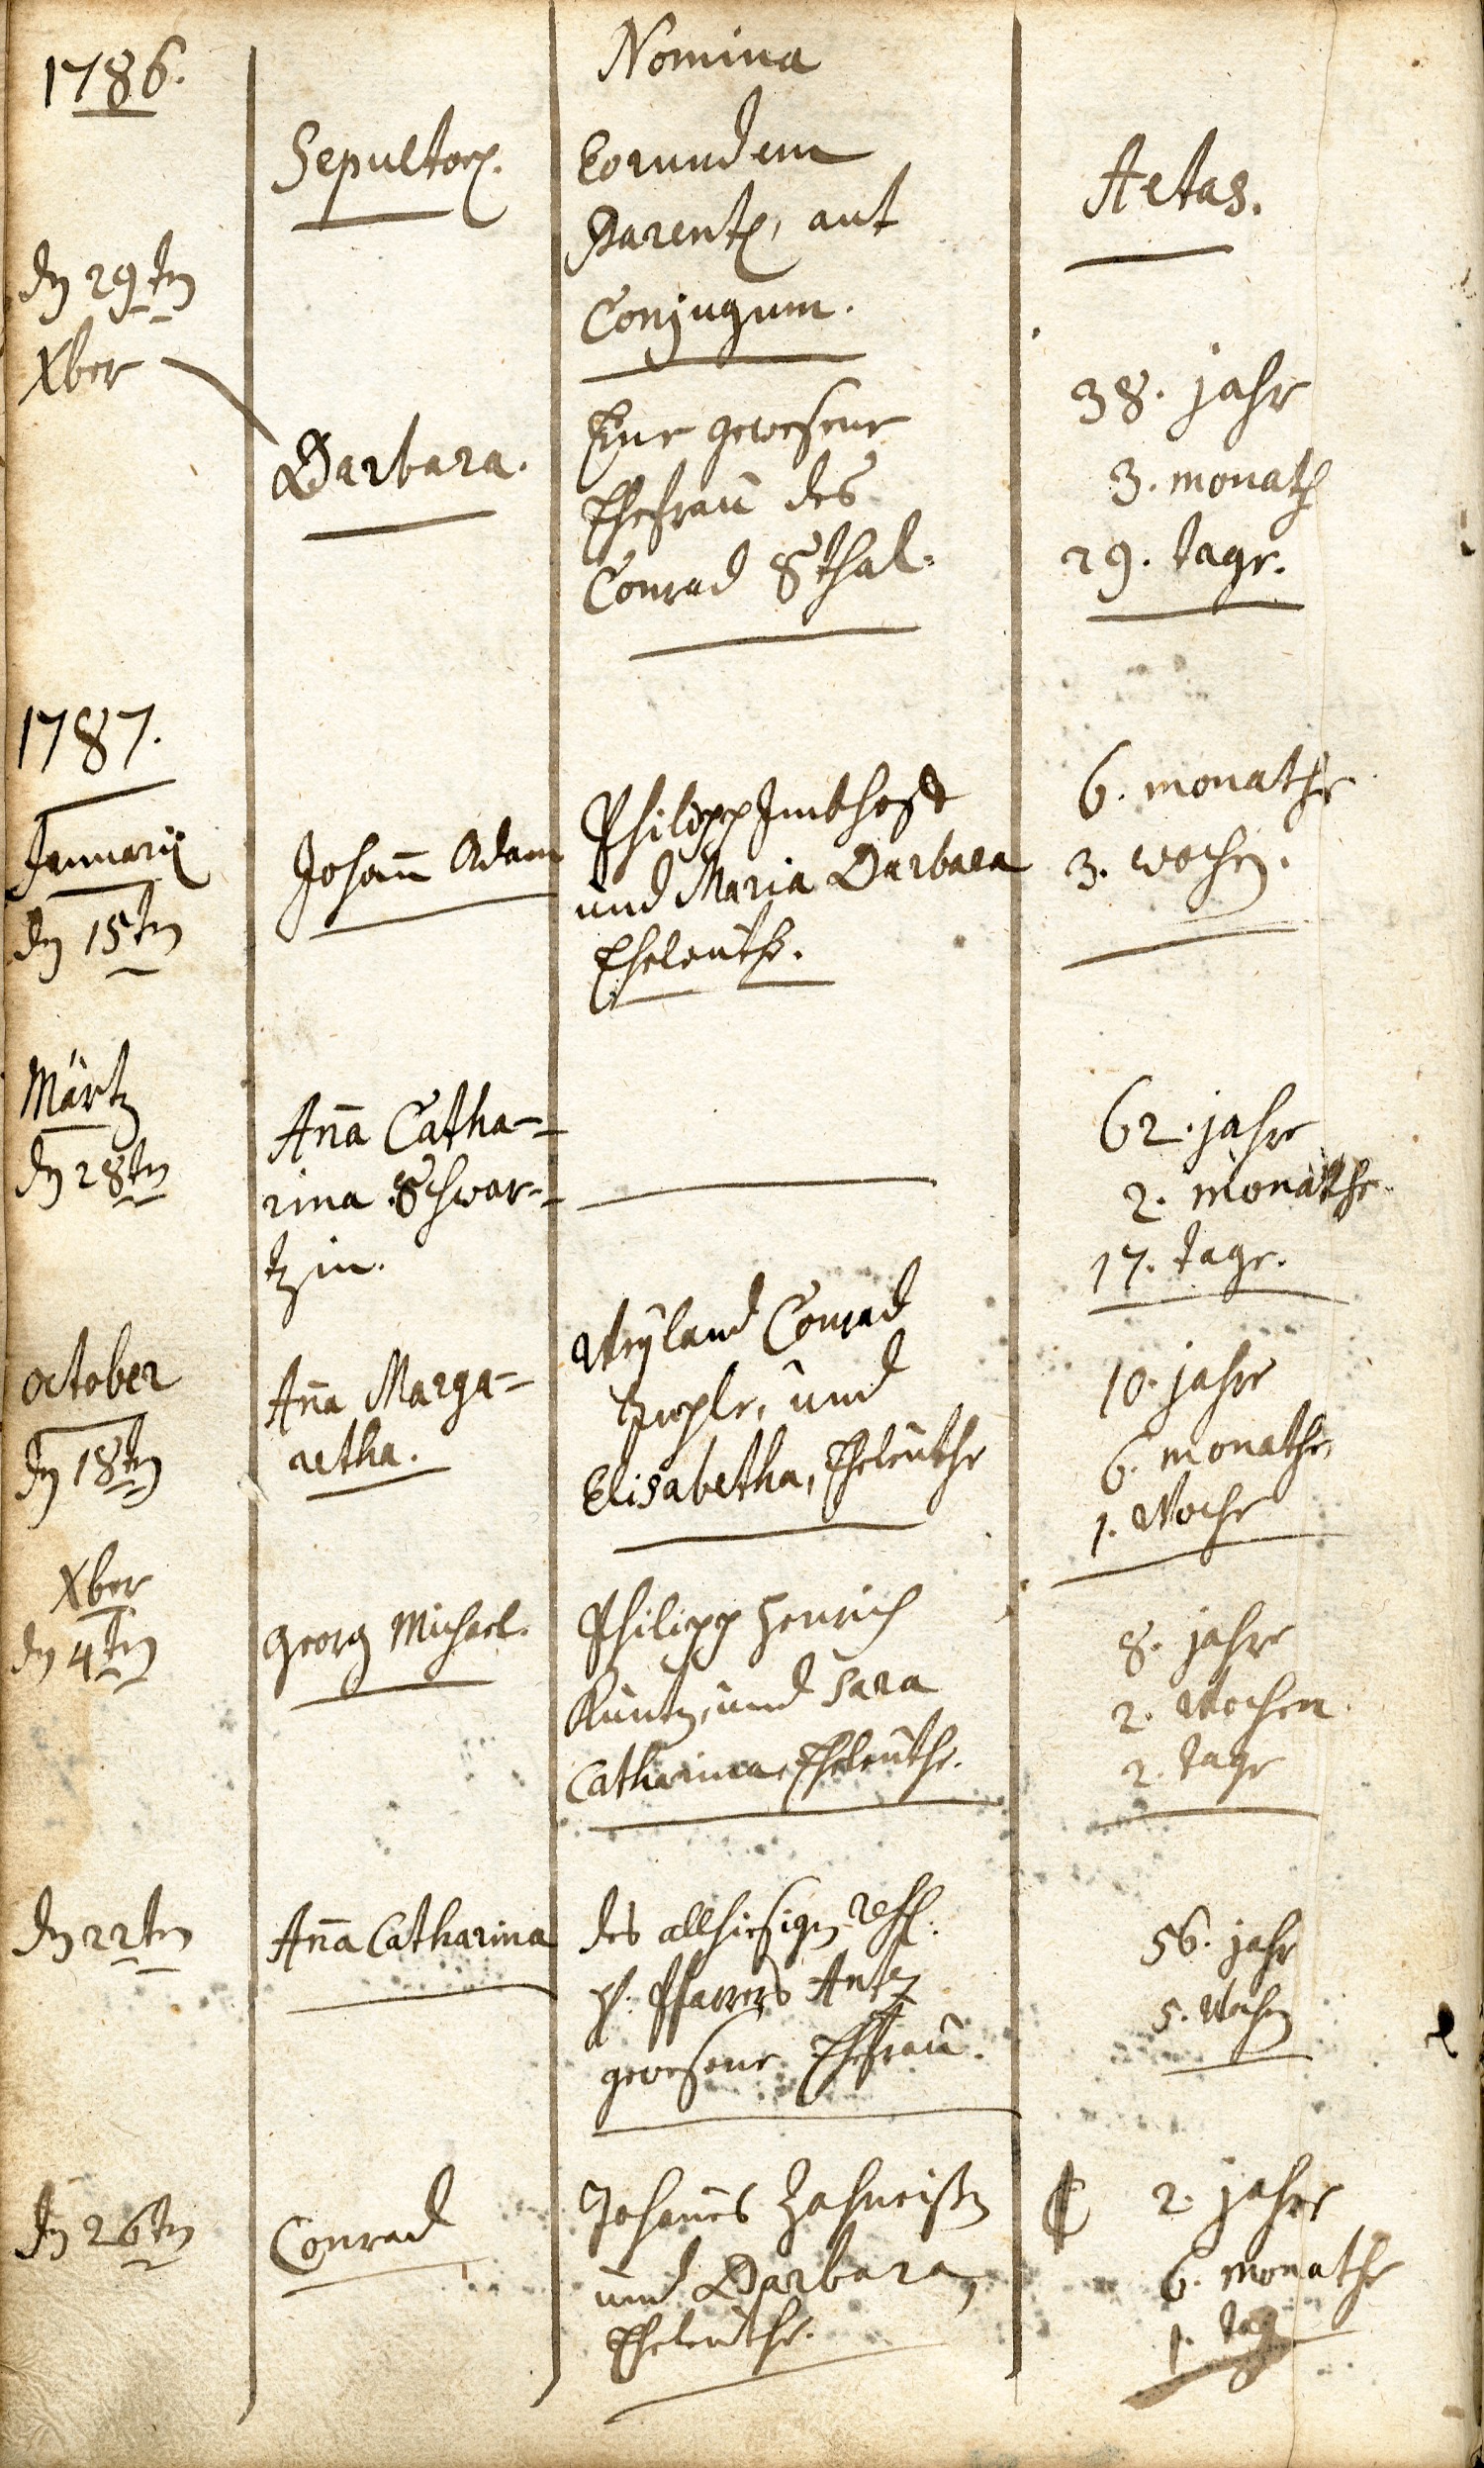 1786.
Sepultorum.
Nomina
Eorundem
Parentum, aut
Conjugum.
Aetas.
den 29ten
Xber
Barbara.
Eine gewesene
Ehefrau des
Conrad Sthal.
38. jahr
3. monath
29. tage.
1787.
Januarii
den 15ten
Johañ Adam
Philipp
und Maria Barbara
Eheleuthe.
6. monathe
3. wochen.
Märtz
den 28ten
Aña Catha-
rina Schwar-
tzin.
62. jahre
2. monathe.
17. tage.
October
den 18ten
Aña Marga-
retha.
Weyland Conrad
und
Elisabetha, Eheleuthe
10. jahre
6. monathe,
1. Woche
Xber
den 4ten
Georg Michael.
Philipp Henrich
Kuntz, und Sara
Catharina Eheleuthe.
8. jahre
2. Wochen.
2. tage
den 22ten
Aña Catharina
des allhiesigen
H. Pfarrers Antz
gewesene Ehefrau.
56. jahr
5. Wochen
den 26ten
Conrad
Johañes
und Barbara,
Eheleuthe.
2. jahre
6. monathe
1. tag